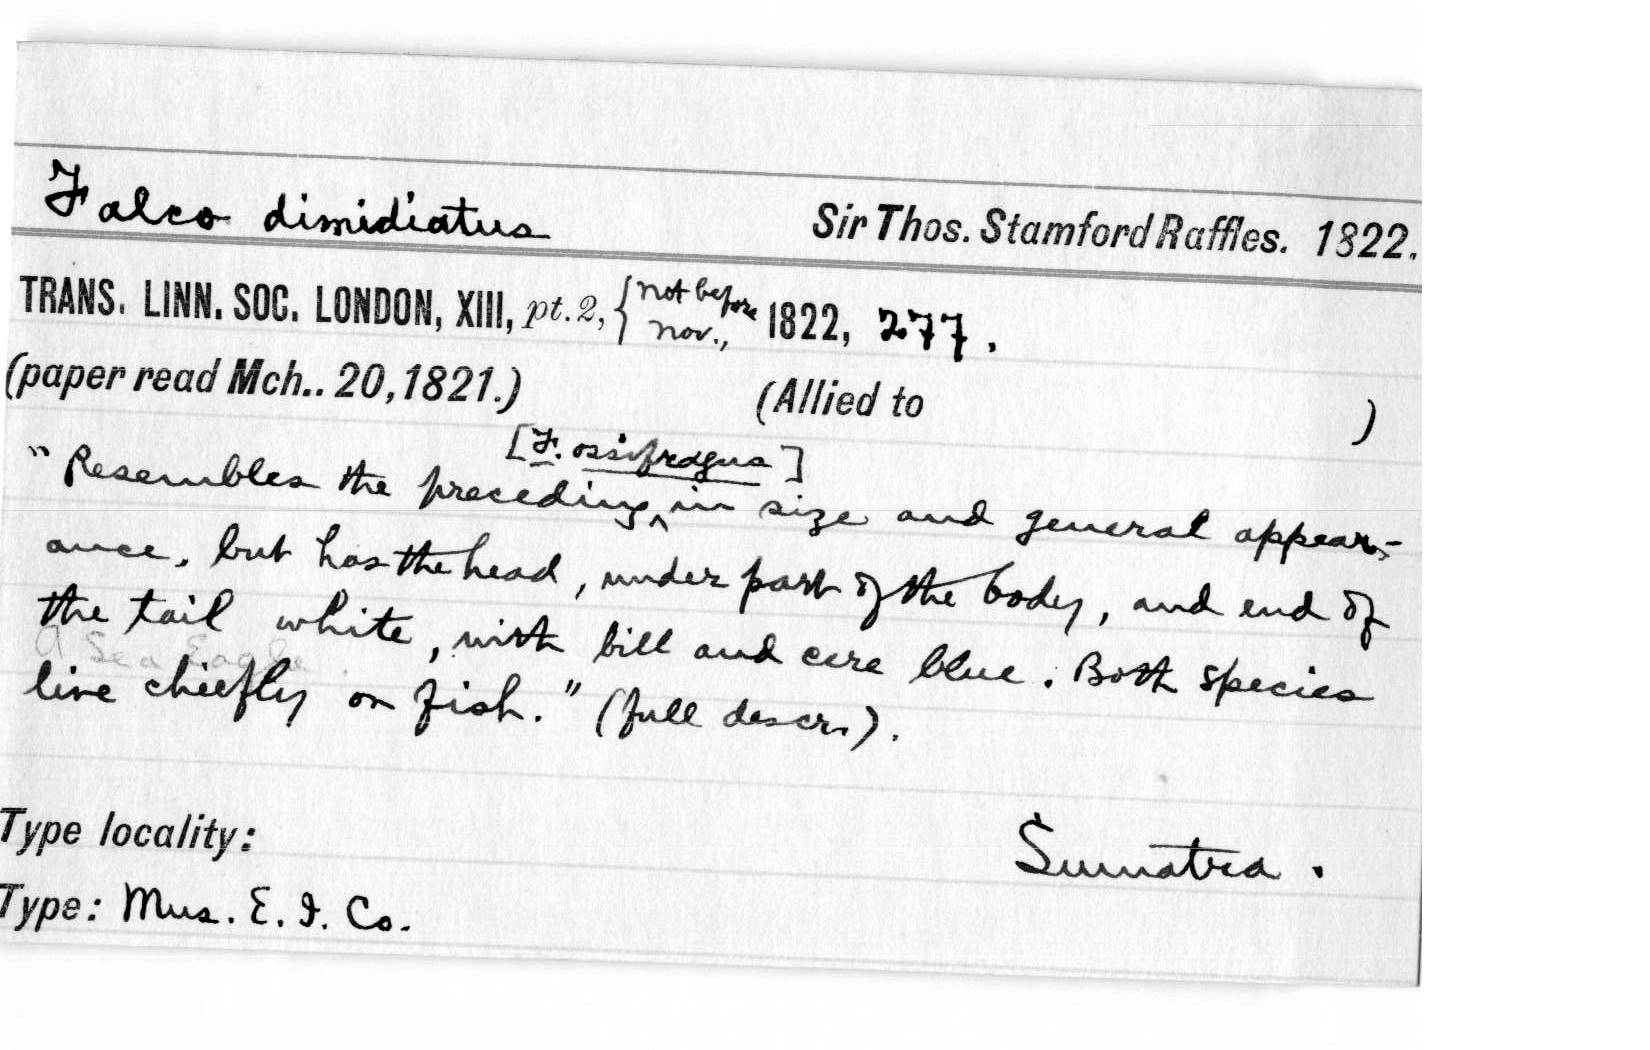 Falco dimidiatus Sir Thos. Stamford Raffles. 1822.
TRANS. LINN. SOC. LONDON, XIII, pt. 2, { not before Nov., 1822, 277.
(paper read Mch.. 20, 1821.) (Allied to )
[F. ossifragus]
"Resembles the preceding ^ in size and general appear-
ance, but has the head, under part of the body, and end of
the tail white, with bill and cere blue. Both species
A Sea Eagle.
live chiefly on fish." (full descr.).
Type locality: Sumatra.
Type: Mus. E. I. Co.